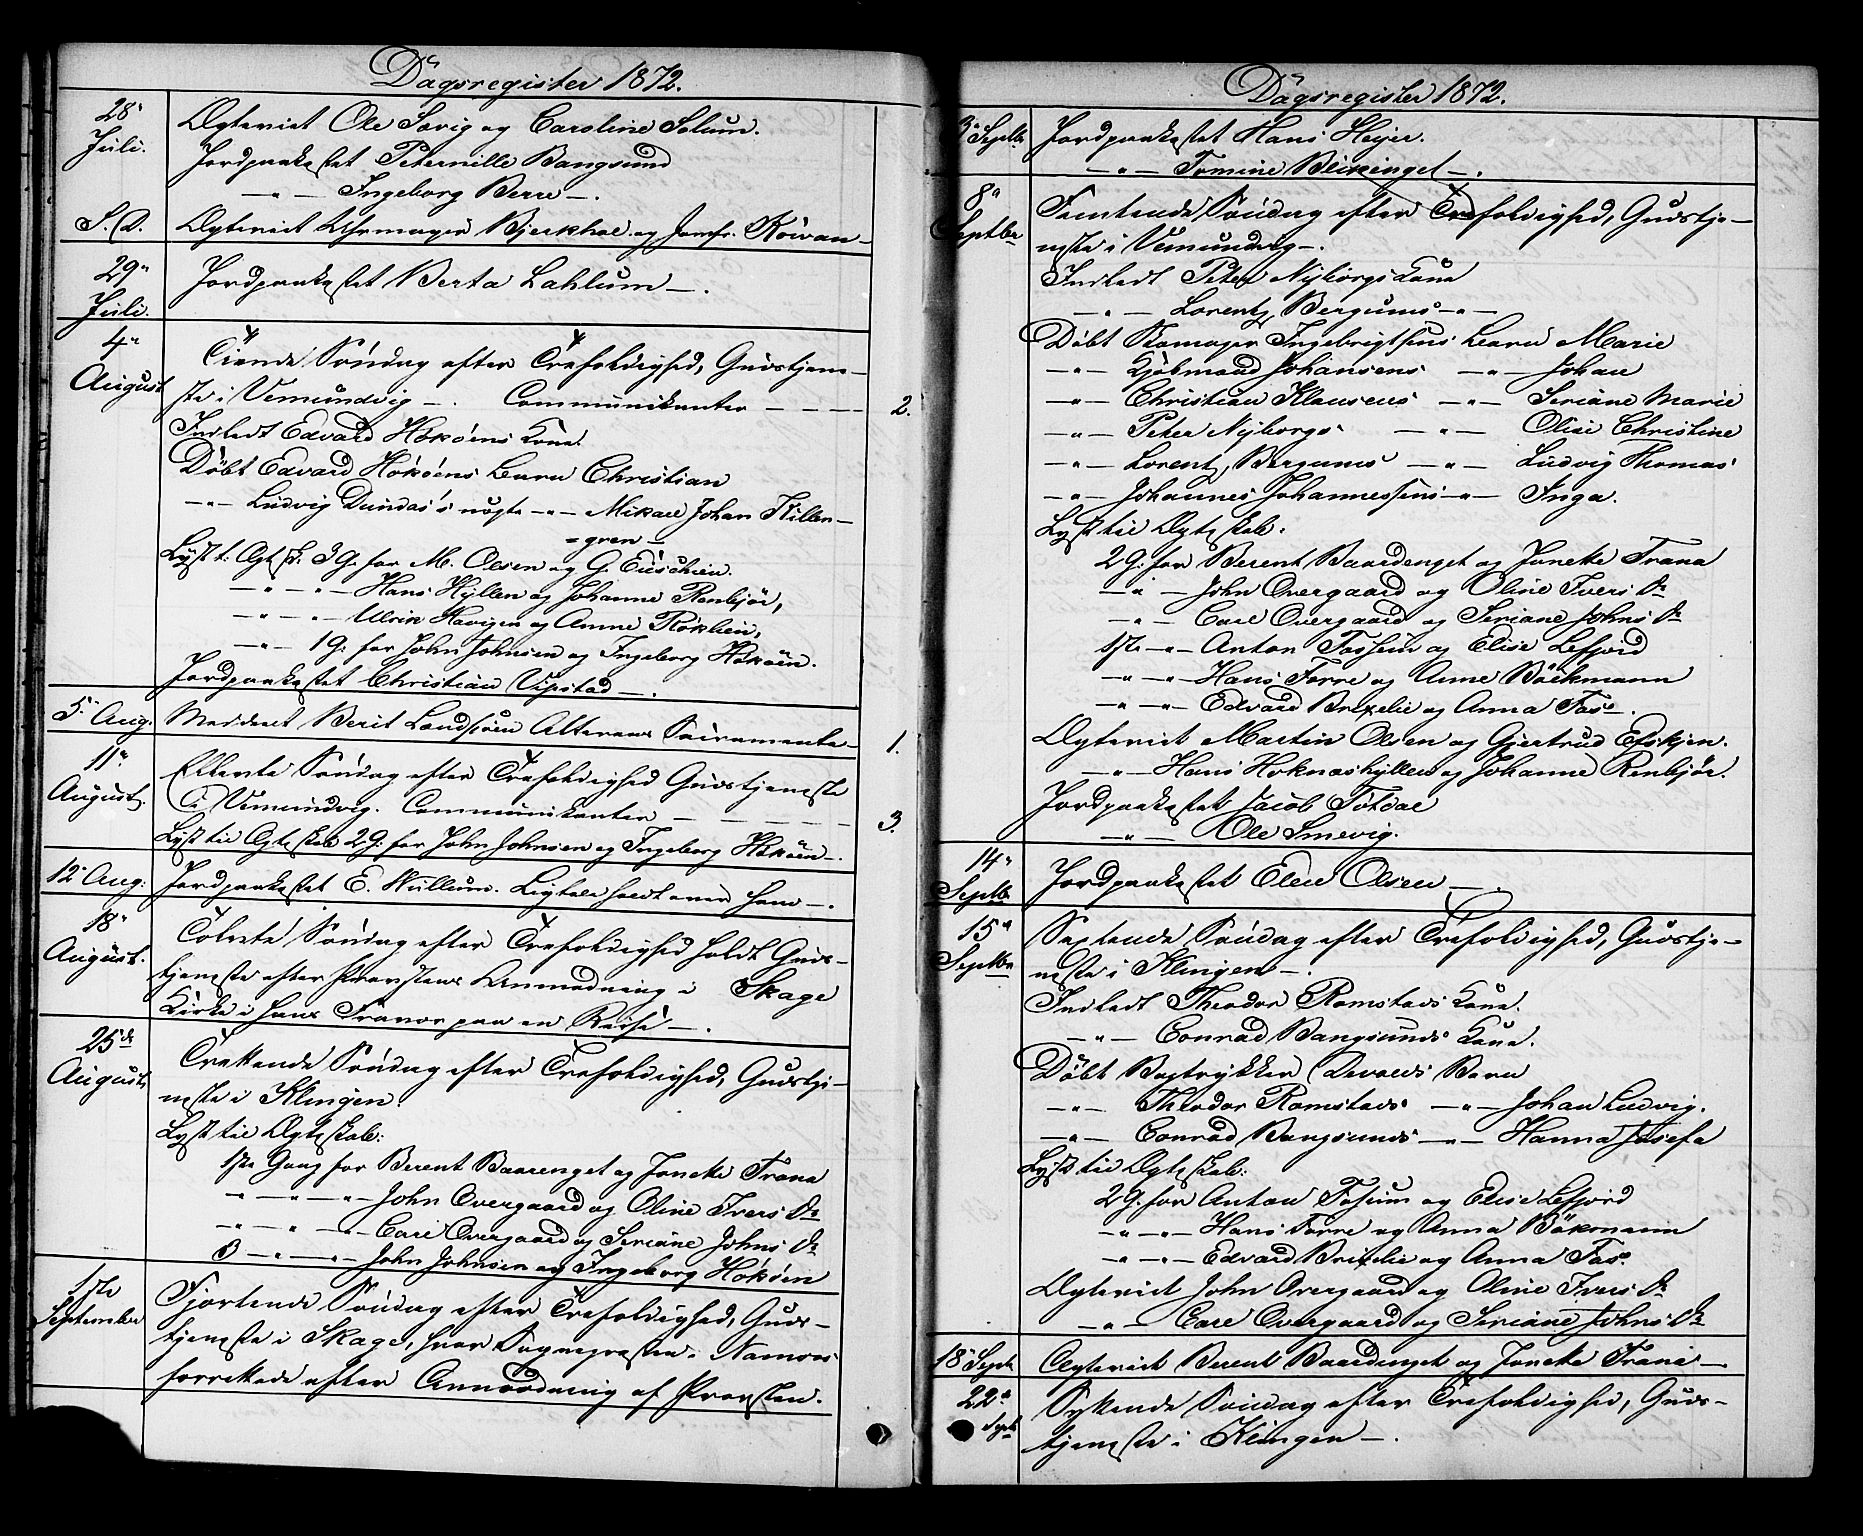 Dagsregister 1872.
28de Juli. Ægteviet Ole Sævig og Caroline Solum.
Jordpaakastet Peternille Bangsund
—"— Ingeborg Berre —.
S. D. Ægteviet Uhrmager Bjerkhoe og Jomfr.
29de Juli. Jordpaakastet Berta Lahlum —.
4de August Tiende Søndag efter Trefoldighed, Gudstjene-
ste i Vemundvig —. Communikanter — — — — 2.
Indledt Edvard Hoköens Kone.
Döbt Edvard Hoköens Barn Christian
—"— Ludvig Dundas's uægte —"— Mikael Johan Killen-
=gren—
Lyst t. Ægtsk. 3 G. for M. Olsen og G.
—"—"— Hans Hyllen og Johanne Renbjör,
—"—"— Ulrik Havigen og Anne Röklien,
—"— 1 G. for John Johnsen og Ingeborg Hoköen.
Jordpaakastet Christian Vipstad —.
5. Aug. Meddeelt Berit Landsöen Alterens Sacramente — 1.
11te August. Ellevte Søndag efter Trefoldighed Gudstjeneste
i Vemundvig. Communikanter — — — — 3.
Lyst til Ægteskab 2 G. for John Johnsen og Ingeborg Hoköen —.
12te Aug: Jordpaakastet E. Willum. Ligtale holdt over ham —.
18de August. Tolvte Søndag efter Trefoldighed holdt Guds-
tjeneste efter Provstens Anmodning i Skage
Kirke i hans Fravær paa en Reise —.
25de August. Trettende Søndag efter Trefoldighed, Gudstje-
neste i Klingen.
Lyst til Ægteskab:
1ste Gang for Berent Baarenget og Joneke Trana
—"—"—"— John Overgaard og Oline Ivers Dr
—"—"—"— Carl Overgaard og Seriane Johns Dr
3 —"—"— John Johnsen og Ingeborg Hoköen
1ste September Fjortende Søndag efter Trefoldighed, Guds-
tjeneste i Skage, hvor Sognepresten i Namsos
forrettede efter Anmodning af Provsten.
Dagsregister 1872.
3de Septbr. Jordpaakastet Hans Heyer.
—"— Tomine Blikenget —.
8de Septbr Femtende Søndag efter Trefoldighed, Gudstje-
neste i Vemundvig —.
Indledt Peter Nyborgs Kone
—"— Lorentz Bergums —"—
Döbt Skomager Ingebrigtsens Barn Marie
—"— Kjöbmand Johansens —"— Johan
—"— Christian Klausens —"— Seriane Marie
—"— Peter Nyborgs —"— Oline Christine
—"— Lorentz Bergums —"— Ludvig Thomas
—"— Johannes Johannessens —"— Inga.
Lyst til Ægteskab:
2 G. for Berent Baardenget og Joneke Trana
—"— John Overgaard og Oline Ivers Dr
—"— Carl Overgaard og Seriane Johns Dr
1ste —"— Anton Fossum og Elise Lefjord
—"—"— Hans Torre og Anne Böckmann
—"—"— Edvard Brixelie og Anna Fos —.
Ægteviet Martin Olsen og Gjertrud Efskjen.
—"— Hans Hoknæshyllen og Johanne Renbjör.
Jordpaakastet Jacob Fotdal
—"— Ole Smevig.
14de Septbr. Jordpaakastet Elen Olsen —.
15de Septbr Sextende Søndag efter Trefoldighed, Gudstje-
neste i Klingen —.
Indledt Theodor Romstads Kone.
—"— Conrad Bangsunds Kone.
Döbt Bogtrykker Devolds Barn
—"— Theodor Romstads —"— Johan Ludvig.
—"— Conrad Bangsunds —"— Hanna Josefa
Lyst til Ægteskab:
2 G. for Anton Fossum og Elise Lefjord
—"—"— Hans Torre og Anna Bökmann
—"—"— Edvard Brixelie og Anna Fos.
Ægteviet John Overgaard og Oline Ivers Dr
—"— Carl Overgaard og Seriane Johns Dr
18de Septr Ægteviet Berent Baardenget og Joneke Trana —
22de Sept. Syttende Søndag efter Trefoldighed, Guds-
tjeneste i Klingen —.